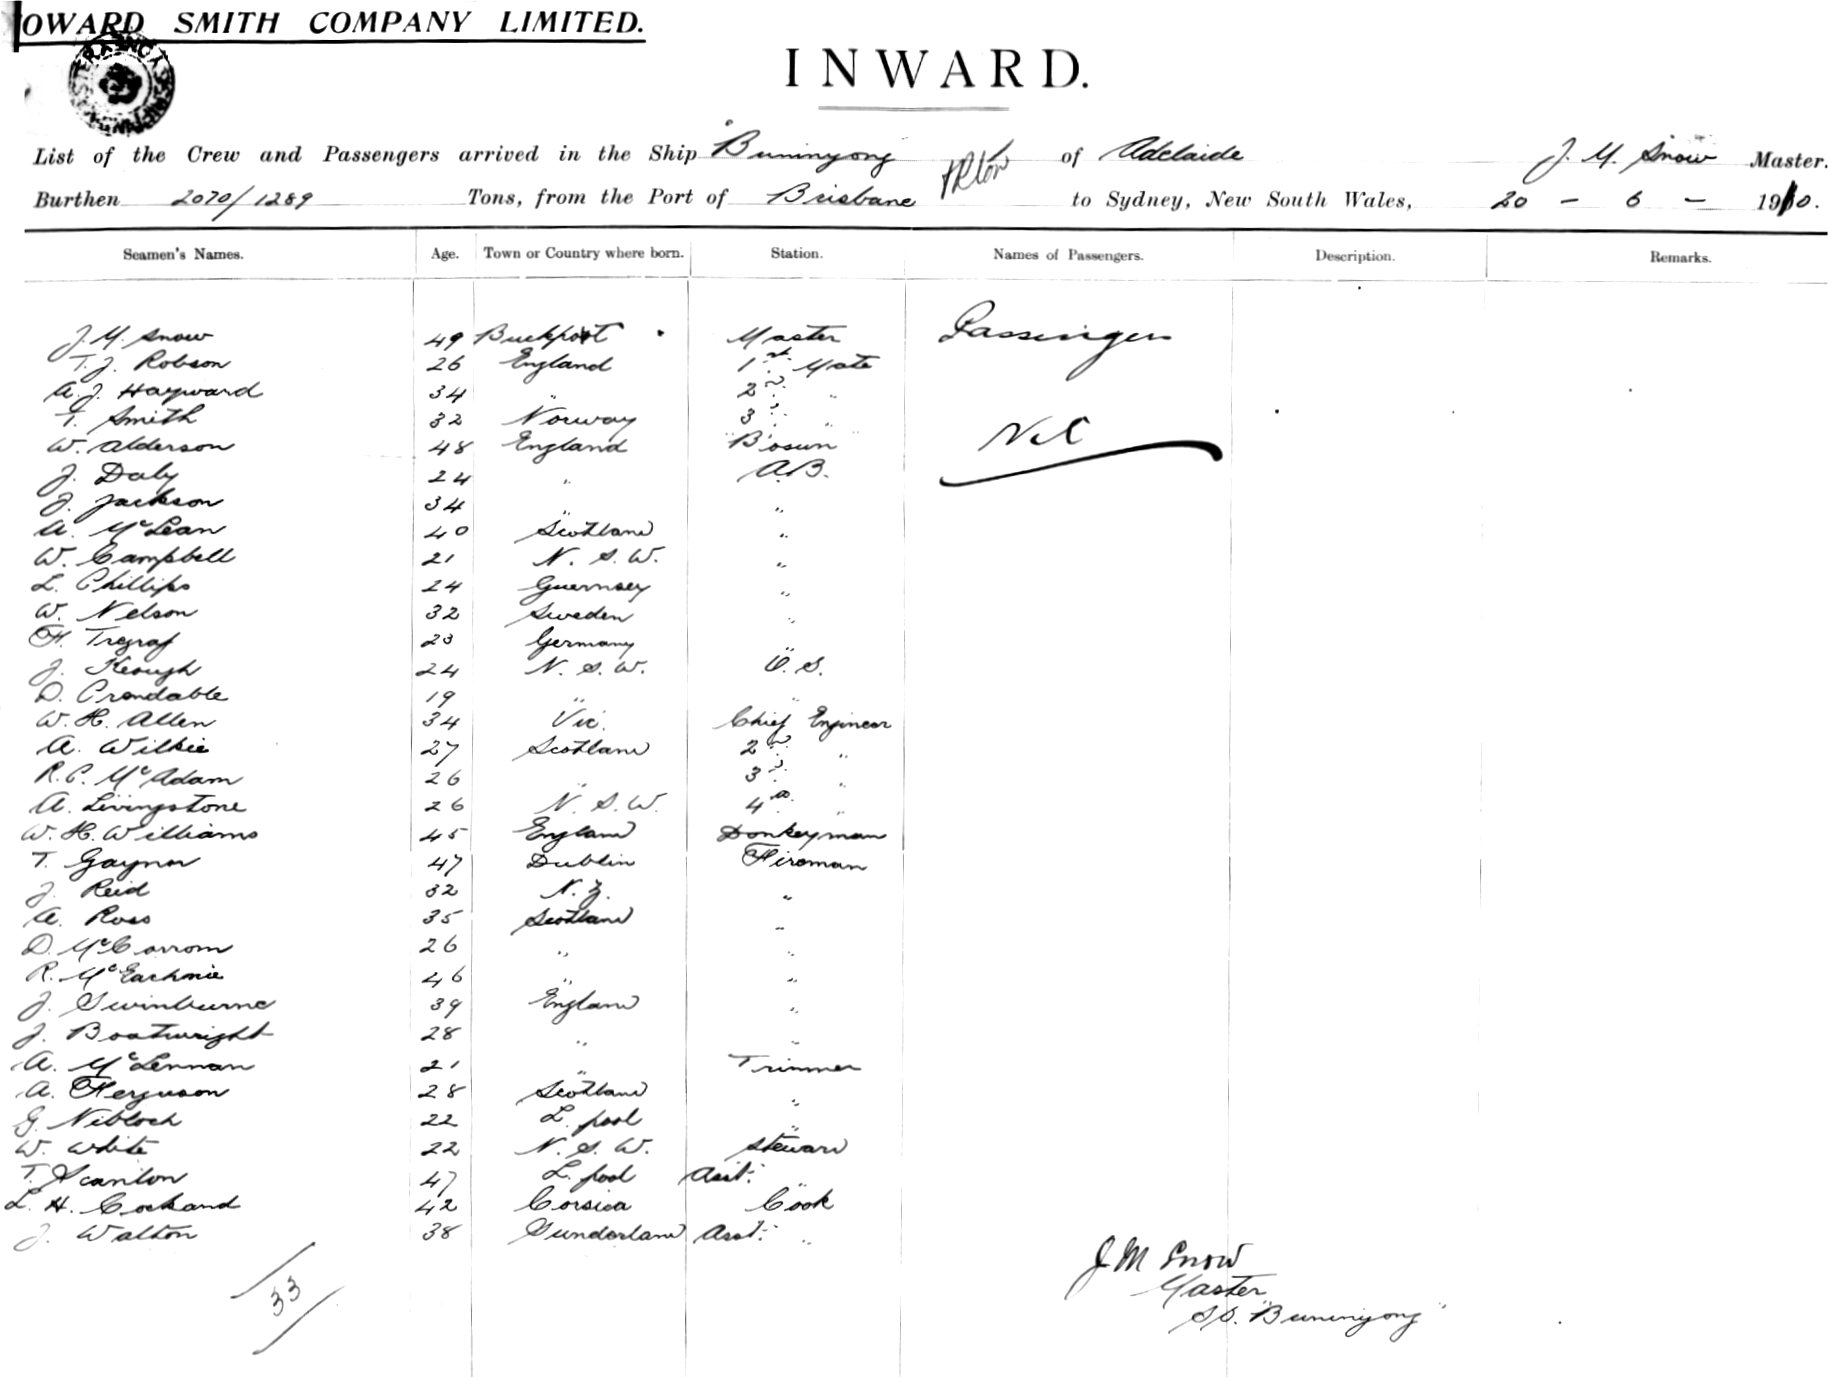 OWARD SMITH COMPANY LIMITED.
INWARD.
List of the Crew and Passengers arrived in the Ship "Buninyong of Adelaide J. M. Snow Master.
Burthen 2070/1289 Tons, from the Port of Brisbane to Sydney, New South Wales, 20 - 6 - 1910.
Seamen's Names. Age. Town or Country where born. Station. Names of Passengers. Description. Remarks.
J. M. Snow 49 Buckport Master Passengers
T. J. Robson 26 England 1st Mate
A. J. Hayward 34 " 2nd "
T. Smith 32 Norway 3rd "
W. Alderson 48 England Bosun Nil
J. Daly 24 " A.B.
J. Jackson 34 " "
A. McLean 40 Scotland "
W. Campbell 21 N. S. W. "
L. Phillips 24 Guernsey "
W. Nelson 32 Sweden "
H. Tregraf 23 Germany "
J. Keough 24 N. S. W. O. S.
D. Crondable 19 " "
W. H. Allen 34 Vic. Chief Engineer
A. Wilkie 27 Scotland 2nd "
R. C. McAdam 26 " 3rd "
A. Livingstone 26 N. S. W. 4th "
W. H. Williams 45 England Donkeyman
T. Gaynor 47 Dublin Fireman
J. Reid 32 N. Z. "
A. Ross 35 Scotland "
D. McCorrom 26 " "
R. McEachnie 46 " "
J. Swinburne 39 England "
J. Boatwright 28 " "
A. McLennan 21 " Trimmer
A. Ferguson 28 Scotland "
G. Nibloch 22 L. pool "
W. White 22 N. S. W. Steward
T. Scanlon 47 L. pool Asst: "
L. H. Cockand 42 Corsica Cook
J. Walton 38 Sunderland Asst: "
33
J M Snow
Master
S.S. "Buninyong"